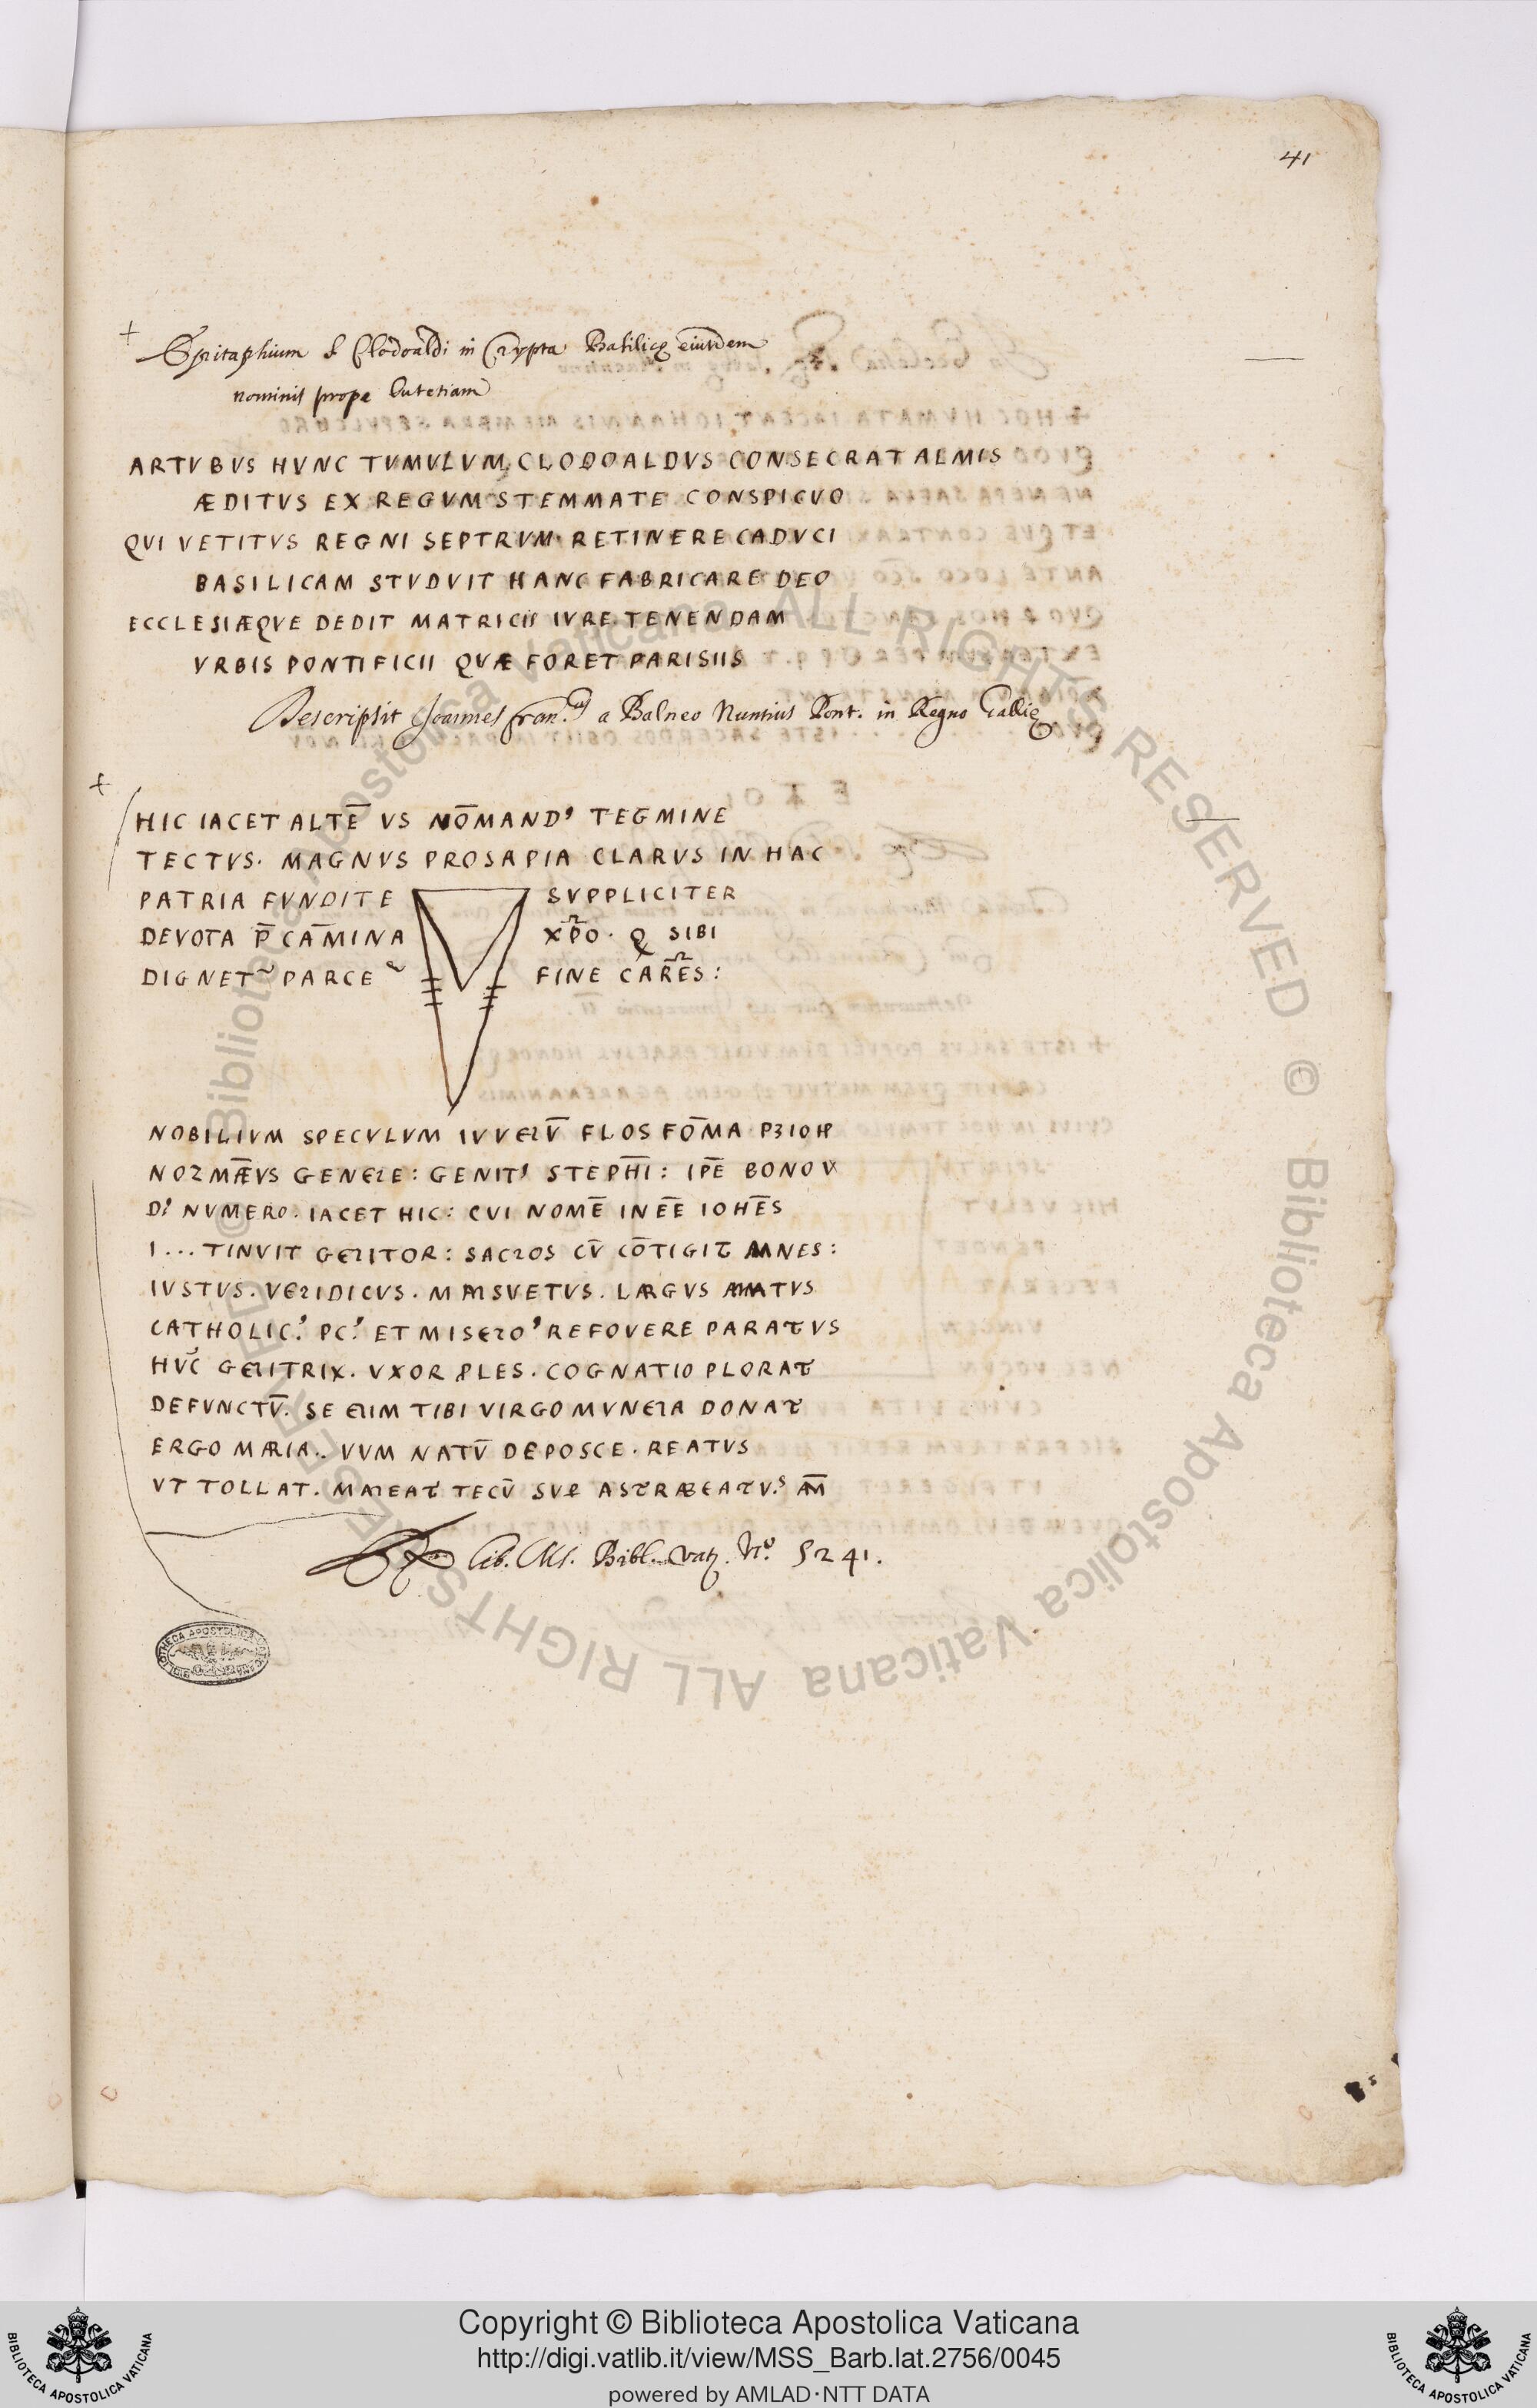 41
+ Epitaphium S Clodoaldi in Crypta Basilicę eiusdem
nominis prope Lutetiam
ARTVBVS HVNC TVMVLVM CLODOALDVS CONSECRAT ALMIS
ÆDITVS EX REGVM STEMMATE CONSPICVO
QVI VETITVS REGNI SEPTRVM RETINERE CADVCI
BASILICAM STVDVIT HANC FABRICARE DEO
ECCLESIÆQVE DEDIT MATRICII IVRE TENENDAM
VRBIS PONTIFICII QVÆ FORET PARISIIS
Descripsit Joannes fran.us a Balneo Nuntius Pont. in Regno Gallię
+
HIC IACET ALTE̅ VS NO̅MAND' TEGMINE
TECTVS. MAGNVS PROSAPIA CLARVS IN HAC
PATRIA FVNDITE SVPPLICITER
DEVOTA P̅ CA̅MINA XPO. Q SIBI
DIGNET~ PARCE FINE CARES:
NOBILIVM SPECVLVM IVVENV̅ FLOS FO̅MA
NORMÆ̅VS GENERE: GENIT' STEPHI̅: IPE̅ BONO
D' NVMERO. IACET HIC: CVI NOME̅ INEE̅ IOHE̅S
I... TINVIT GENITOR: SACROS CV̅ CO̅TIGIT AMNES:
IVSTVS. VERIDICVS. MANSVETVS. LARGVS AMATVS
CATHOLIC.' PC.' ET MISERO' REFOVERE PARATVS
HVC̅ GENITRIX. VXOR PLES. COGNATIO PLORAT
DEFVNCTV̅. SE ENIM TIBI VIRGO MVNERA DONAT
ERGO MARIA.. VVM NATV̅ DEPOSCE. REATVS
VT TOLLAT. MANEAT TECV̅ SVP ASTRA BEATV.S AM̅
Ex Lib. Ms. Bibl. Vat. N.o 5241.
Copyright © Biblioteca Apostolica Vaticana
http://digi.vatlib.it/view/MSS_Barb.lat.2756/0045
powered by AMLAD·NTT DATA
BIBLIOTECA APOSTOLICA VATICANA
BIBLIOTECA APOSTOLICA VATICANA
© Biblioteca Apostolica Vaticana ALL RIGHTS RESERVED © Biblioteca Apostolica Vaticana ALL RIGHTS RESERVED